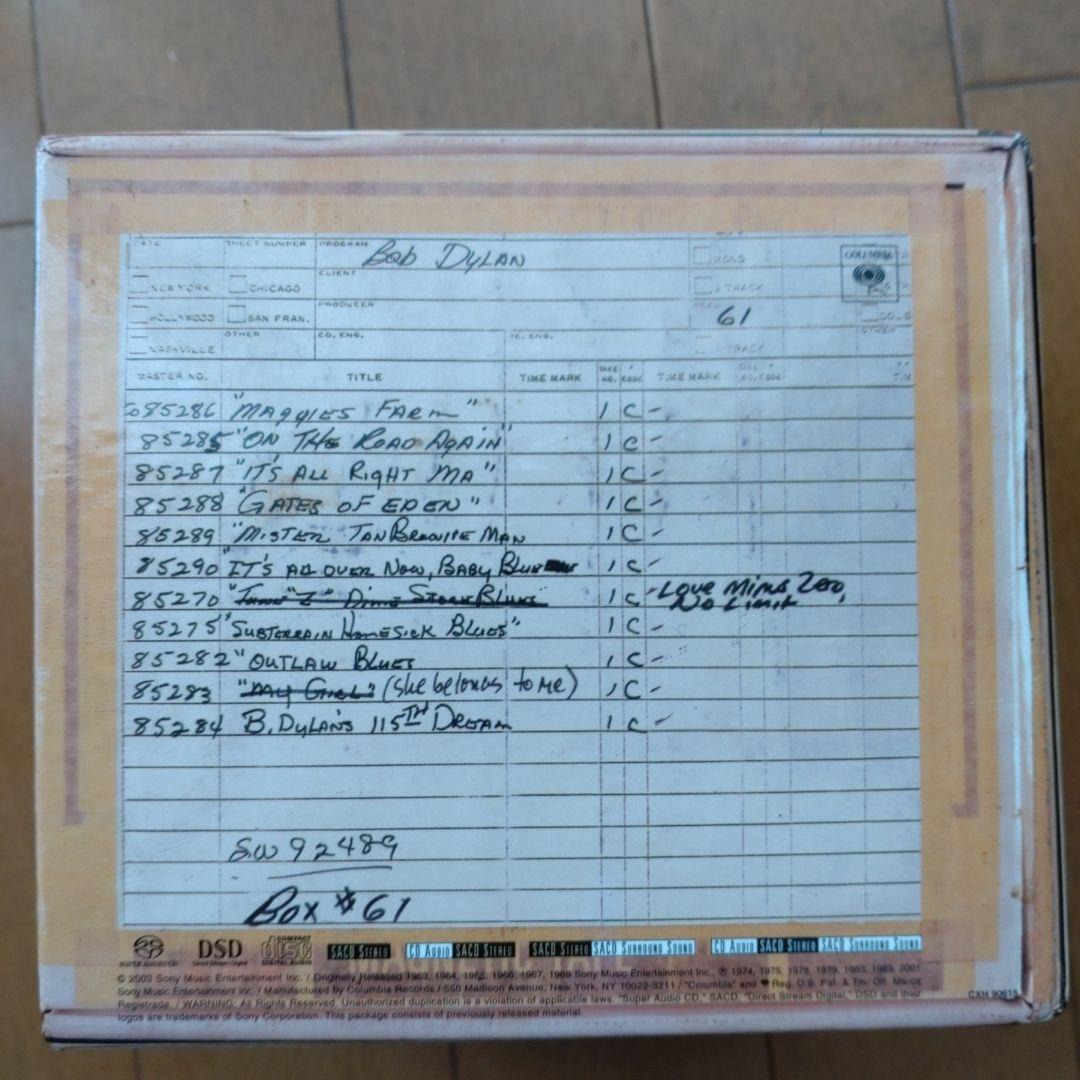 DATE SHEET NUMBER PROGRAM Bob DYLAN MONO
COLUMBIA
NEW YORK CHICAGO CLIENT 2 TRACK
HOLLYWOOD SAN FRAN. PRODUCER REEL 61
NASHVILLE OTHER CO. ENG. TRACK OTHER
MASTER NO. TITLE TIME MARK TAKE NO. * CODE TIME MARK TAKE NO. CODE
85286 "MAGGIES FARM" 1 C -
85285 "ON THE ROAD AGAIN" 1 C -
85287 "IT'S ALL RIGHT MA" 1 C -
85288 "GATES OF EDEN" 1 C -
85289 "MISTER TANBROURIE MAN 1 C -
85290 "IT'S ALL OVER NOW, BABY BLUE 1 C -
85270 1 C - LOVE MINUS ZERO,
NO LIMIT
85275 "SUBTERRAIN HOMESICK BLUES" 1 C -
85282 "OUTLAW BLUES 1 C -
85283 "MY GIRL" (she belongs to me) 1 C -
85284 B. DYLAN'S 115TH DREAM 1 C -
SW 92489
BOX #61
SUPER AUDIO CD DSD Direct Stream Digital COMPACT disc DIGITAL AUDIO SACD STEREO CD AUDIO SACD STEREO SACD STEREO SACD SURROUND SOUND CD AUDIO SACD STEREO SACD SURROUND SOUND
© 2003 Sony Music Entertainment Inc. / Originally Released 1963, 1964, 1965, 1966, 1967, 1969 Sony Music Entertainment Inc., ℗ 1974, 1975, 1978, 1979, 1983, 1989, 2001
Sony Music Entertainment Inc. / Manufactured by Columbia Records / 550 Madison Avenue, New York, NY 10022-3211 / "Columbia" and Reg. U.S. Pat. & Tm. Off. Marca
Registrada. / WARNING: All Rights Reserved. Unauthorized duplication is a violation of applicable laws. "Super Audio CD," SACD, "Direct Stream Digital," DSD and their
logos are trademarks of Sony Corporation. This package consists of previously released material.
CXH 90615